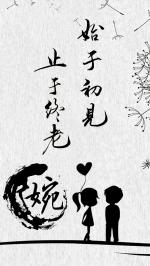 始于初見
止于终老
婉